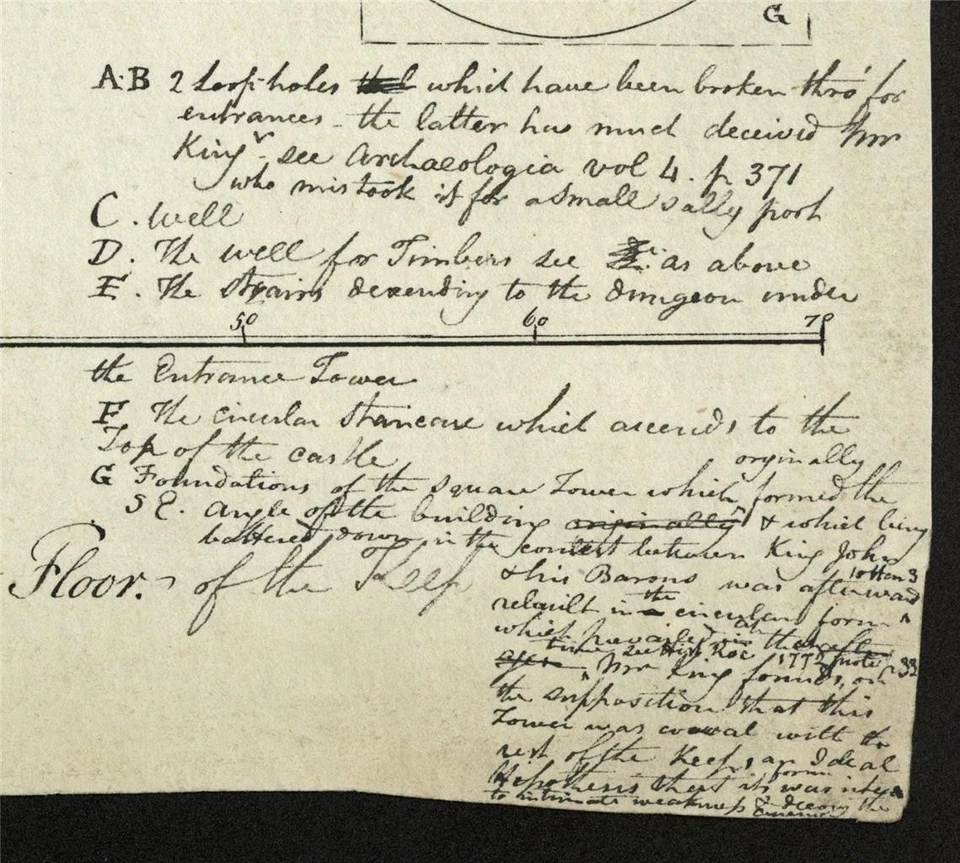 G
A·B 2 Loop-holes which have been broken thro' for
entrances - the latter has much deceived Mr
King - see Archaeologia vol 4. p 371
who mistook it for a small sally port
C. Well
D. The well for Timbers see as above
E. The Stairs descending to the dungeon under
50 60 70
the Entrance Tower
F The circular staircase which ascends to the
Top of the castle
orginally
G Foundations of the square Tower which formed the
S E. angle of the building originally & which being
battered down in the contest between King John
Floor. of the Keep
& his Barons was afterward
rebuilt in the circular form
which prevailed at
time see Hist Roc 1772 note p 33
Mr King founds, on
the supposition that this
Tower was coeval with the
rest of the Keep, an Ideal
Hypothesis that its form was
to intimate weakness & decoy the